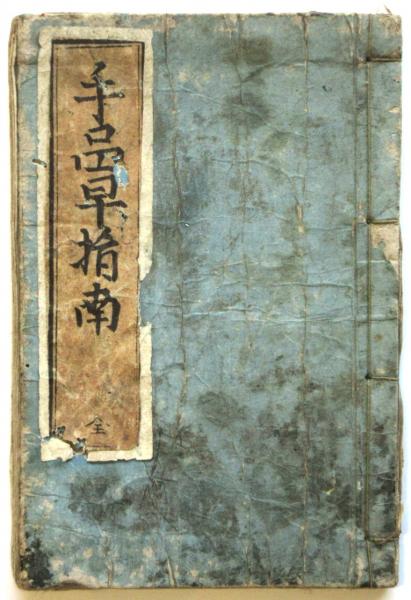 手品早指南
全